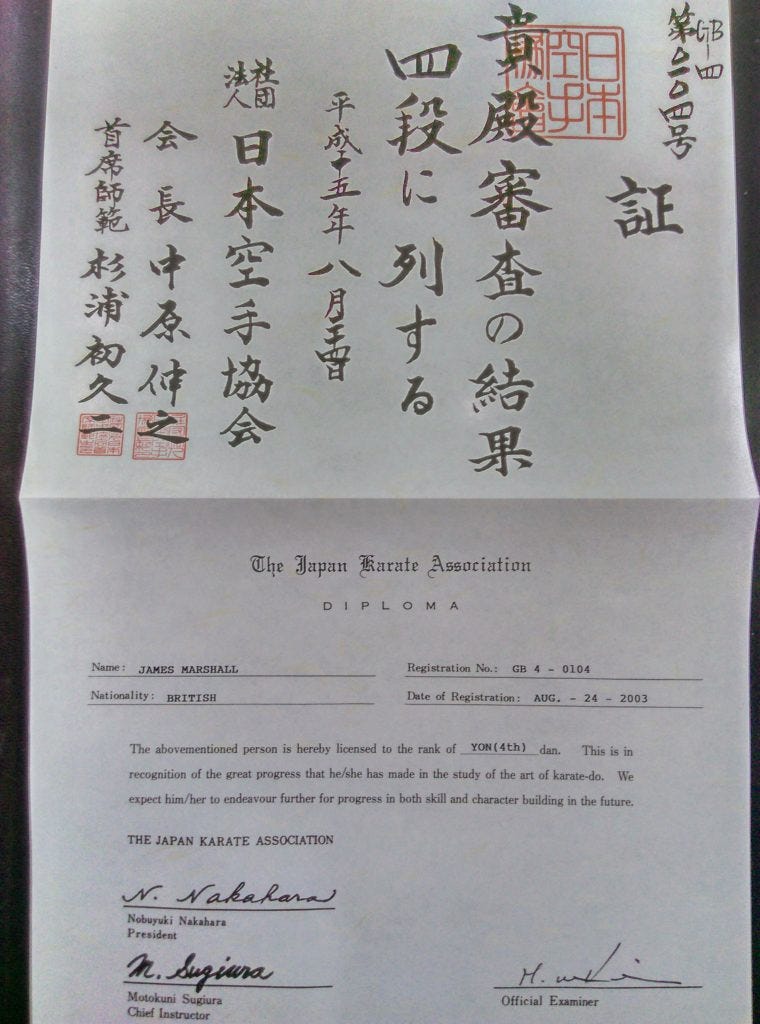 GB-四
第〇一〇四号
日本
空手
協會
証
貴殿審査の結果
四段に列する
平成十五年八月二十四日
社団
法人
日本空手協会
会長 中原伸之
首席師範 杉浦初久二
The Japan Karate Association
DIPLOMA
Name: JAMES MARSHALL
Registration No.: GB 4 - 0104
Nationality: BRITISH
Date of Registration: AUG. - 24 - 2003
The abovementioned person is hereby licensed to the rank of YON(4th) dan. This is in
recognition of the great progress that he/she has made in the study of the art of karate-do. We
expect him/her to endeavour further for progress in both skill and character building in the future.
THE JAPAN KARATE ASSOCIATION
N. Nakahara
Nobuyuki Nakahara
President
M. Sugiura
Motokuni Sugiura
Chief Instructor
Official Examiner